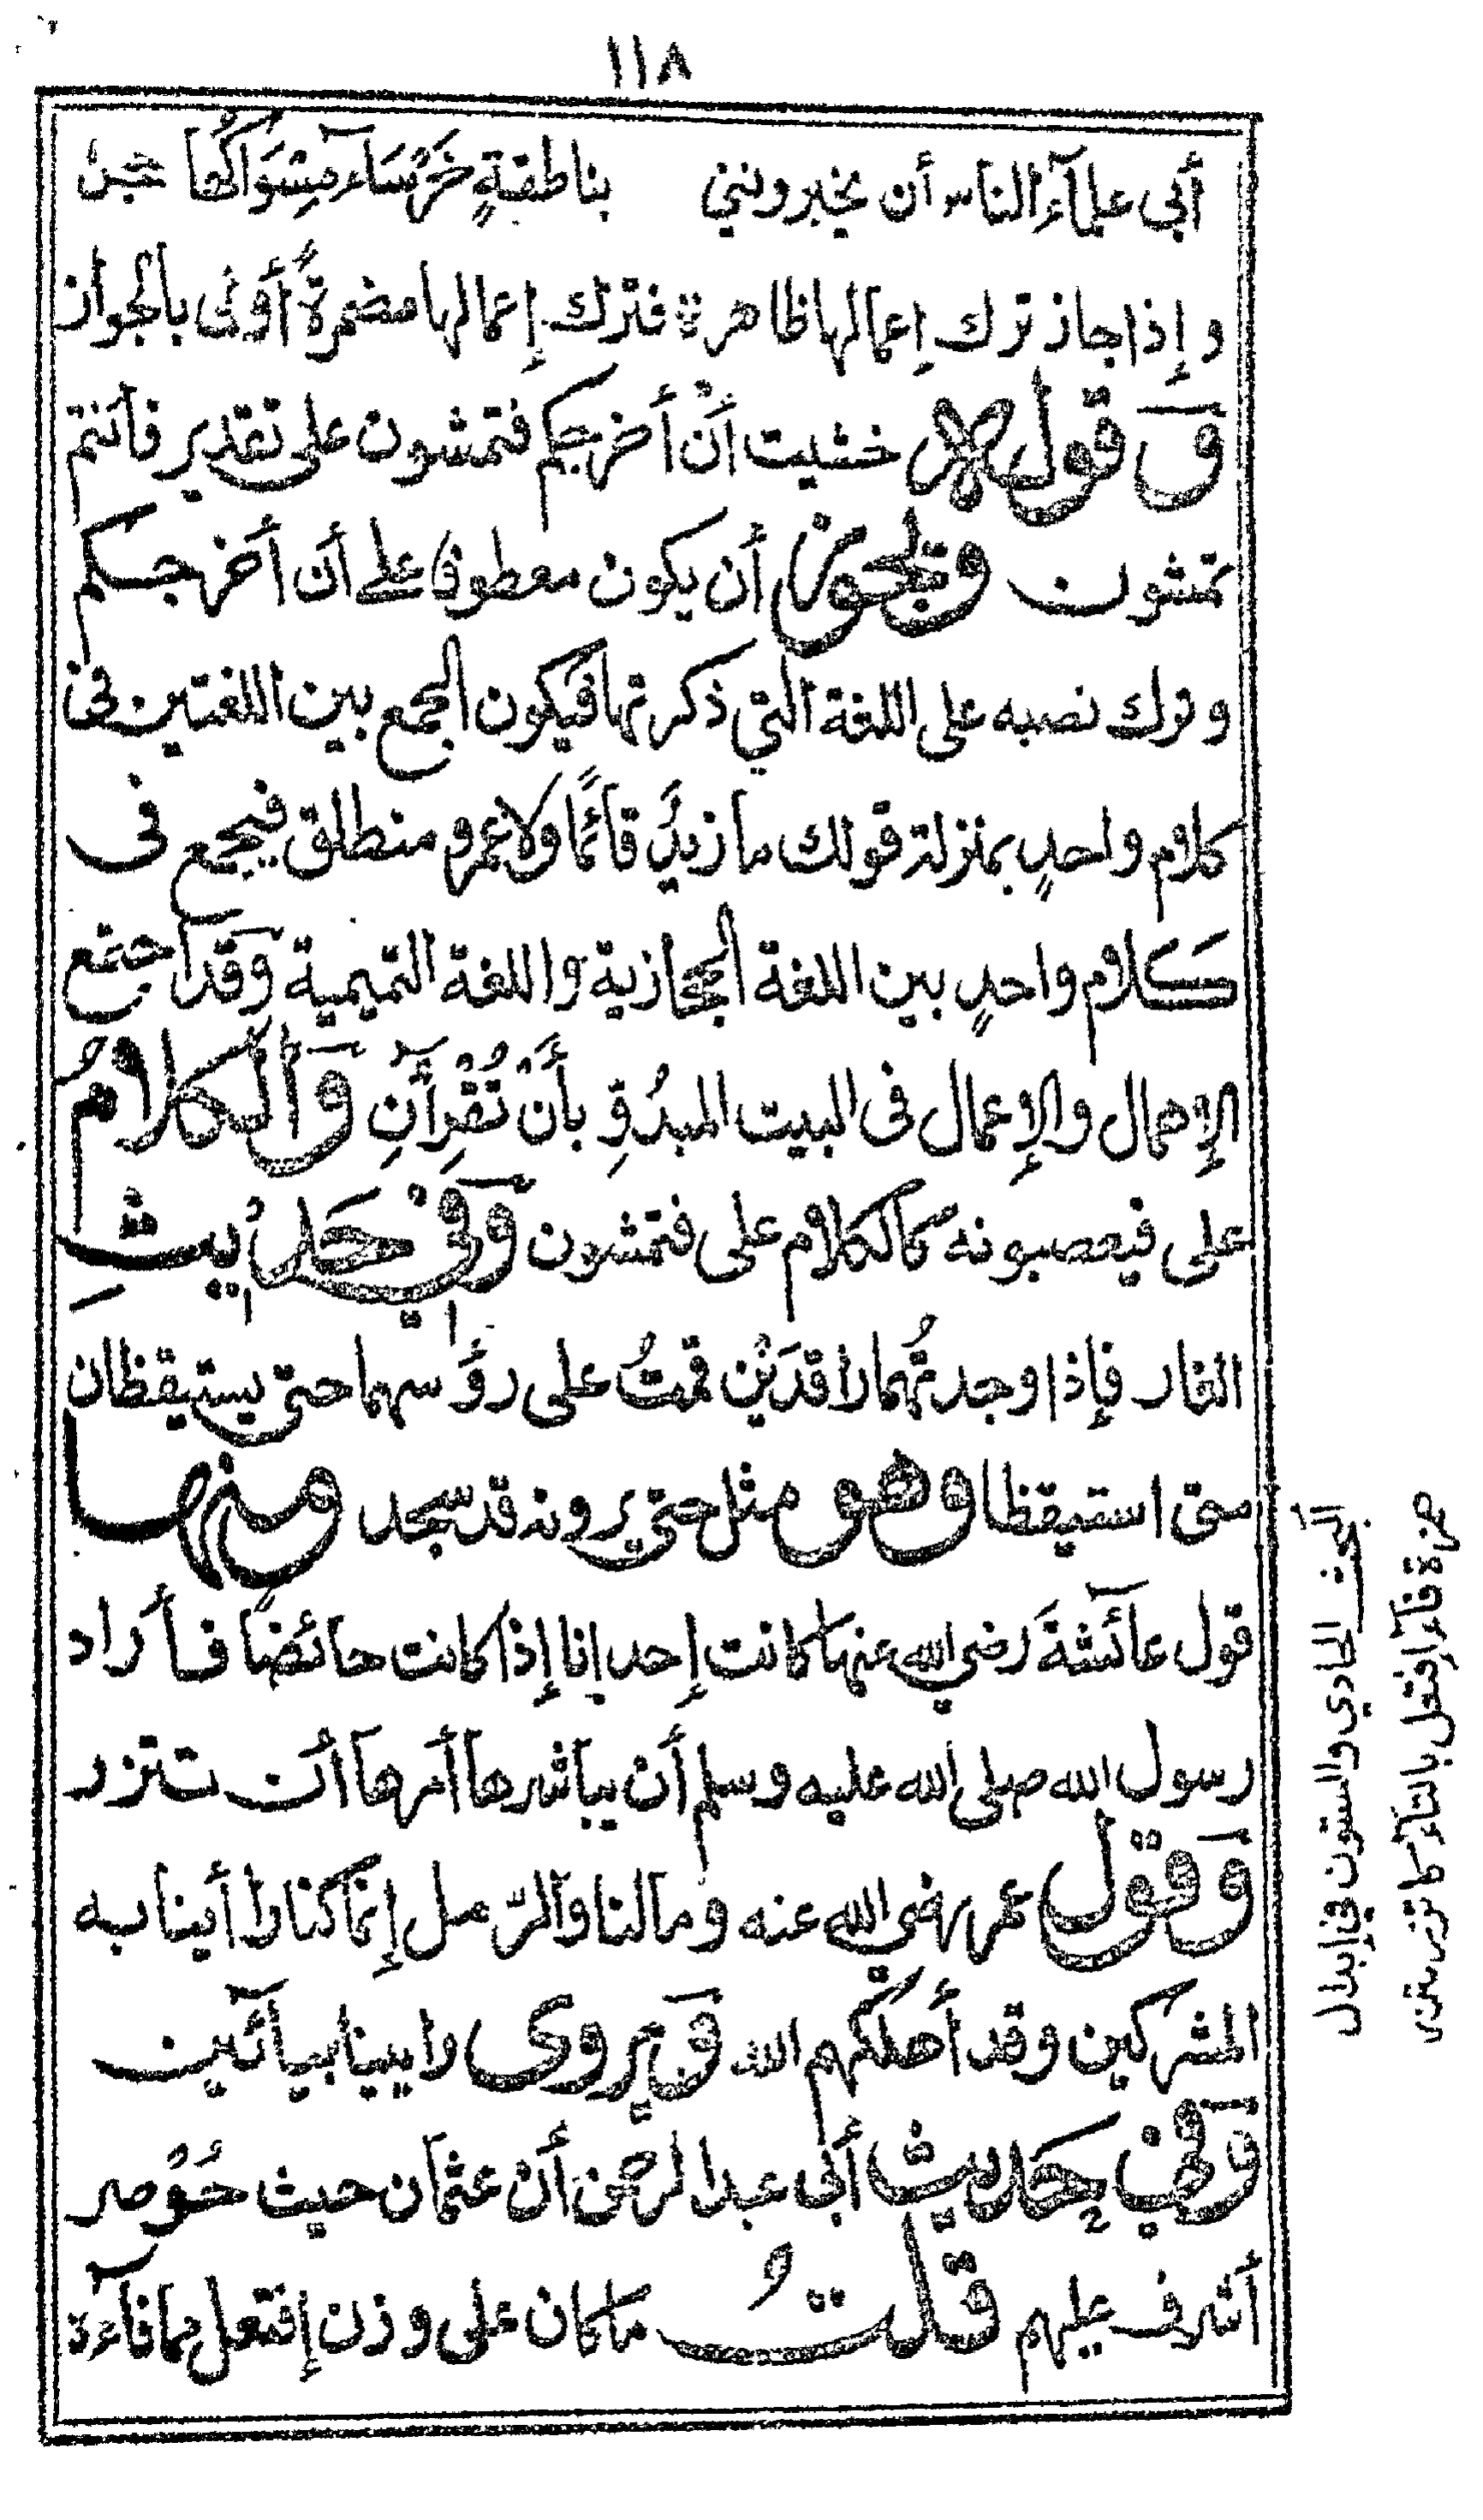 ١١٨
أبى علمآء الناس أن يخبرونني بناطقةٍ خَرْسَاء مِسْوَاكُها حجرُ
وإذا جاز ترك إعمالها ظاهرة فترك إعمالها مضمرةً أولى بالجواز
وَقوله خشيت أنْ أخرجكم فتمشون على تقدير فأنتم
تمشون ويجوز أن يكون معطوفا على أن أخرجكم
وترك نصبه على اللغة التي ذكرتها فيكون الجمع بين اللغتين في
كلام واحدٍ بمنزلة قولك ما زيدٌ قائمًا ولا عمرو منطلق فيجمع فى
كلام واحدٍ بين اللغة الحجازية واللغة التميمية وَقد اجتمع
الإهمال والإعمال فى البيت المبدُوِّ بأَنْ تُقْرِآنِ وَالكلامُ
على فيعصبونه كالكلام على فتمشون وَفِيْ حَدِيثِ
الغار فإذا وجدتُهما راقدَيْن قمتُ على رؤسهما حتى يستيقظان
متى استيقظا وهو مثل حتى يرونه قد سجد ومنها
قول عائشةَ رضي الله عنها كانت إحدانا إذا كانت حائضًا فأراد
رسول الله صلى الله عليه وسلم أن يباشرها أمرها أن تتزر
وَقول عمر رضي الله عنه ومالنا وَالرّمل إنما كنا راأينا به
المشركين وقد أهلكهم الله وَيروى راأيينا بيائين
وَفي حديث أبى عبد الرحمن أن عثمان حيث حُوْصر
أشرف عليهم قلتُ ما كان على وزن إفتعل مما فاءه
البحث الحادي والستون في إبدال
همزة فآء افتعل بالتآء كاتزر يتزر